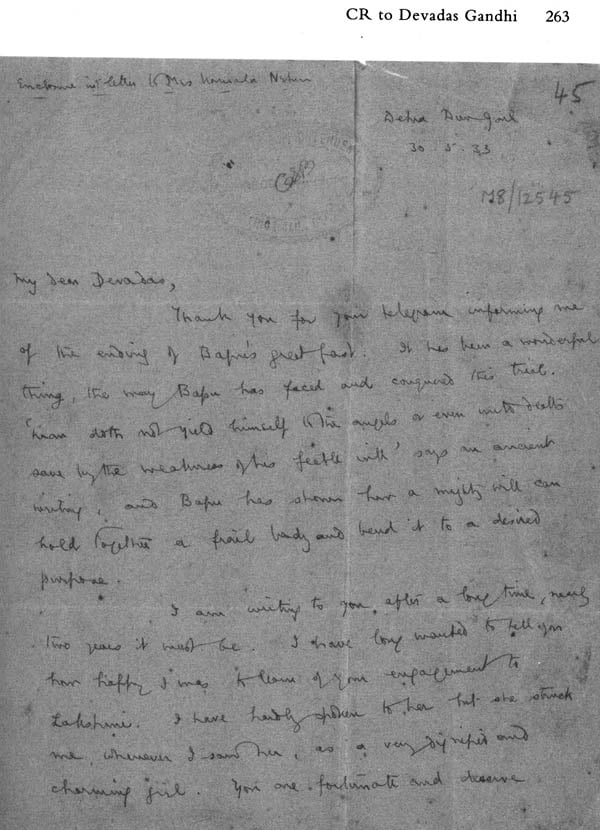 CR to Devadas Gandhi 263
Enclosure in letter to Mrs Kamala Nehru
45
Dehra Dun Gaol
30.5.33
My dear Devadas,
Thank you for your telegram informing me
of the ending of Bapu's great fast. It has been a wonderful
thing, the way Bapu has faced and conquered this trial.
'Man doth not yield himself to the angels or even unto death
save by the weakness of his feeble will' says an ancient
writing, and Bapu has shown how a mighty will can
hold together a frail body and bend it to a desired
purpose.
I am writing to you after a long time, nearly
two years it must be. I have long wanted to tell you
how happy I was to learn of your engagement to
Lakshmi. I have hardly spoken to her but she struck
me, whenever I saw her, as a very dignified and
charming girl. You are fortunate and deserve